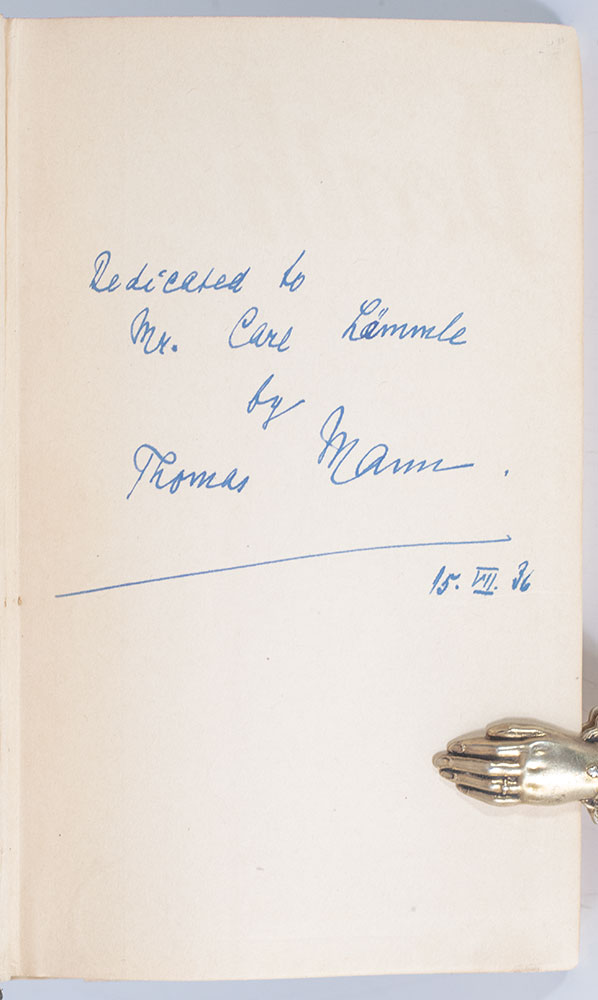 Dedicated to
Mr. Carl Lämmle
by
Thomas Mann.
15. VII. 36